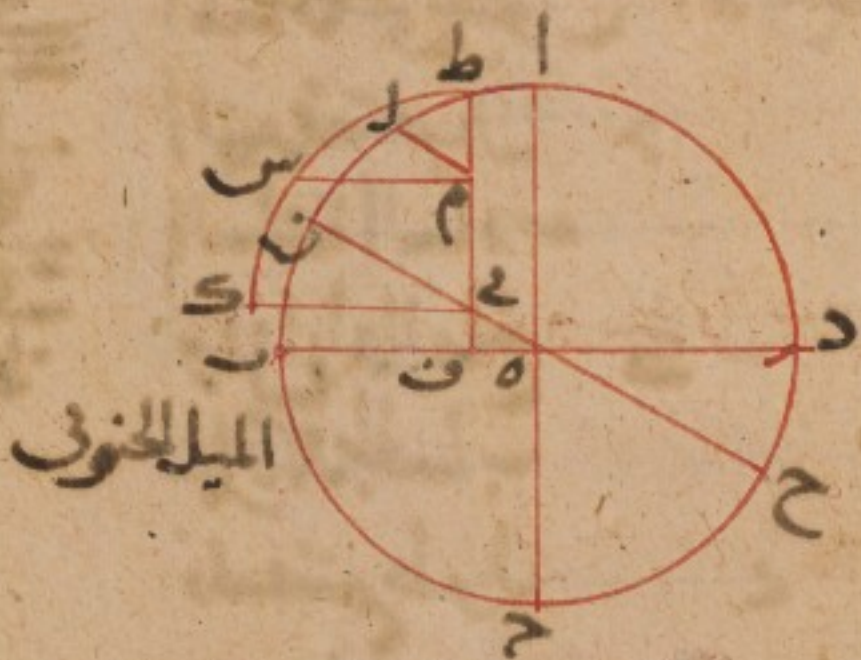 ا
ط
ل
س
م
ن
ع
ك
د
ب
ف
ه
الميل الجنوبى
ح
ج